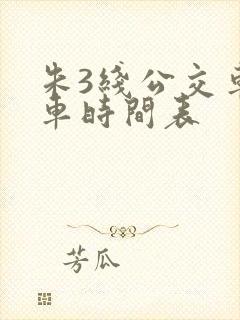 朱3线公交车
車時間表
芳瓜